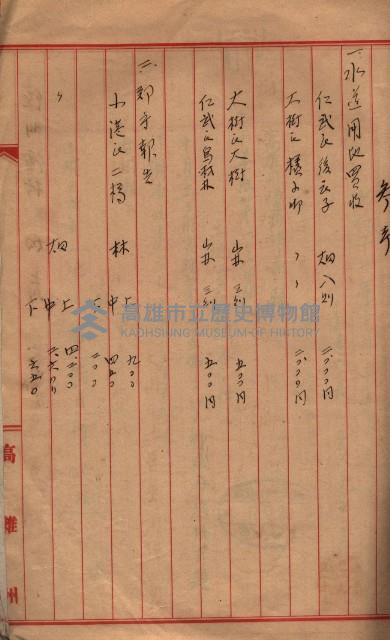 参考
一、水道用地買收
仁武庄後庄子 畑 八則 三、〇〇〇円
大樹庄檨子脚 〃 〃 三、〇〇〇円
大樹庄大樹 山林 三則 五〇〇円
仁武庄烏材林 山林 三則 五〇〇円
二、郡守報告
小港庄二橋 林 上 九〇〇
中 四五〇
下 三〇〇
〃 畑 上 四、二〇〇
中
下
高雄州
高雄市立歷史博物館
KAOHSIUNG MUSEUM OF HISTORY